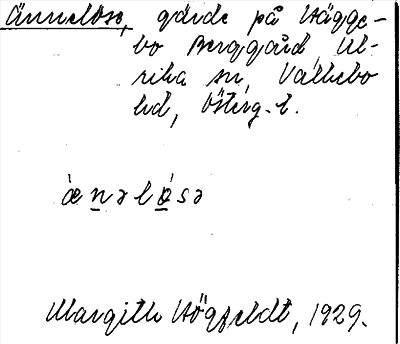 Ännelöse, gärde på Häggebo
Berggård, Ulrika
sn, Valkebo
hd, Österg. l.
ànəløsə
Margith Högfeldt, 1929.